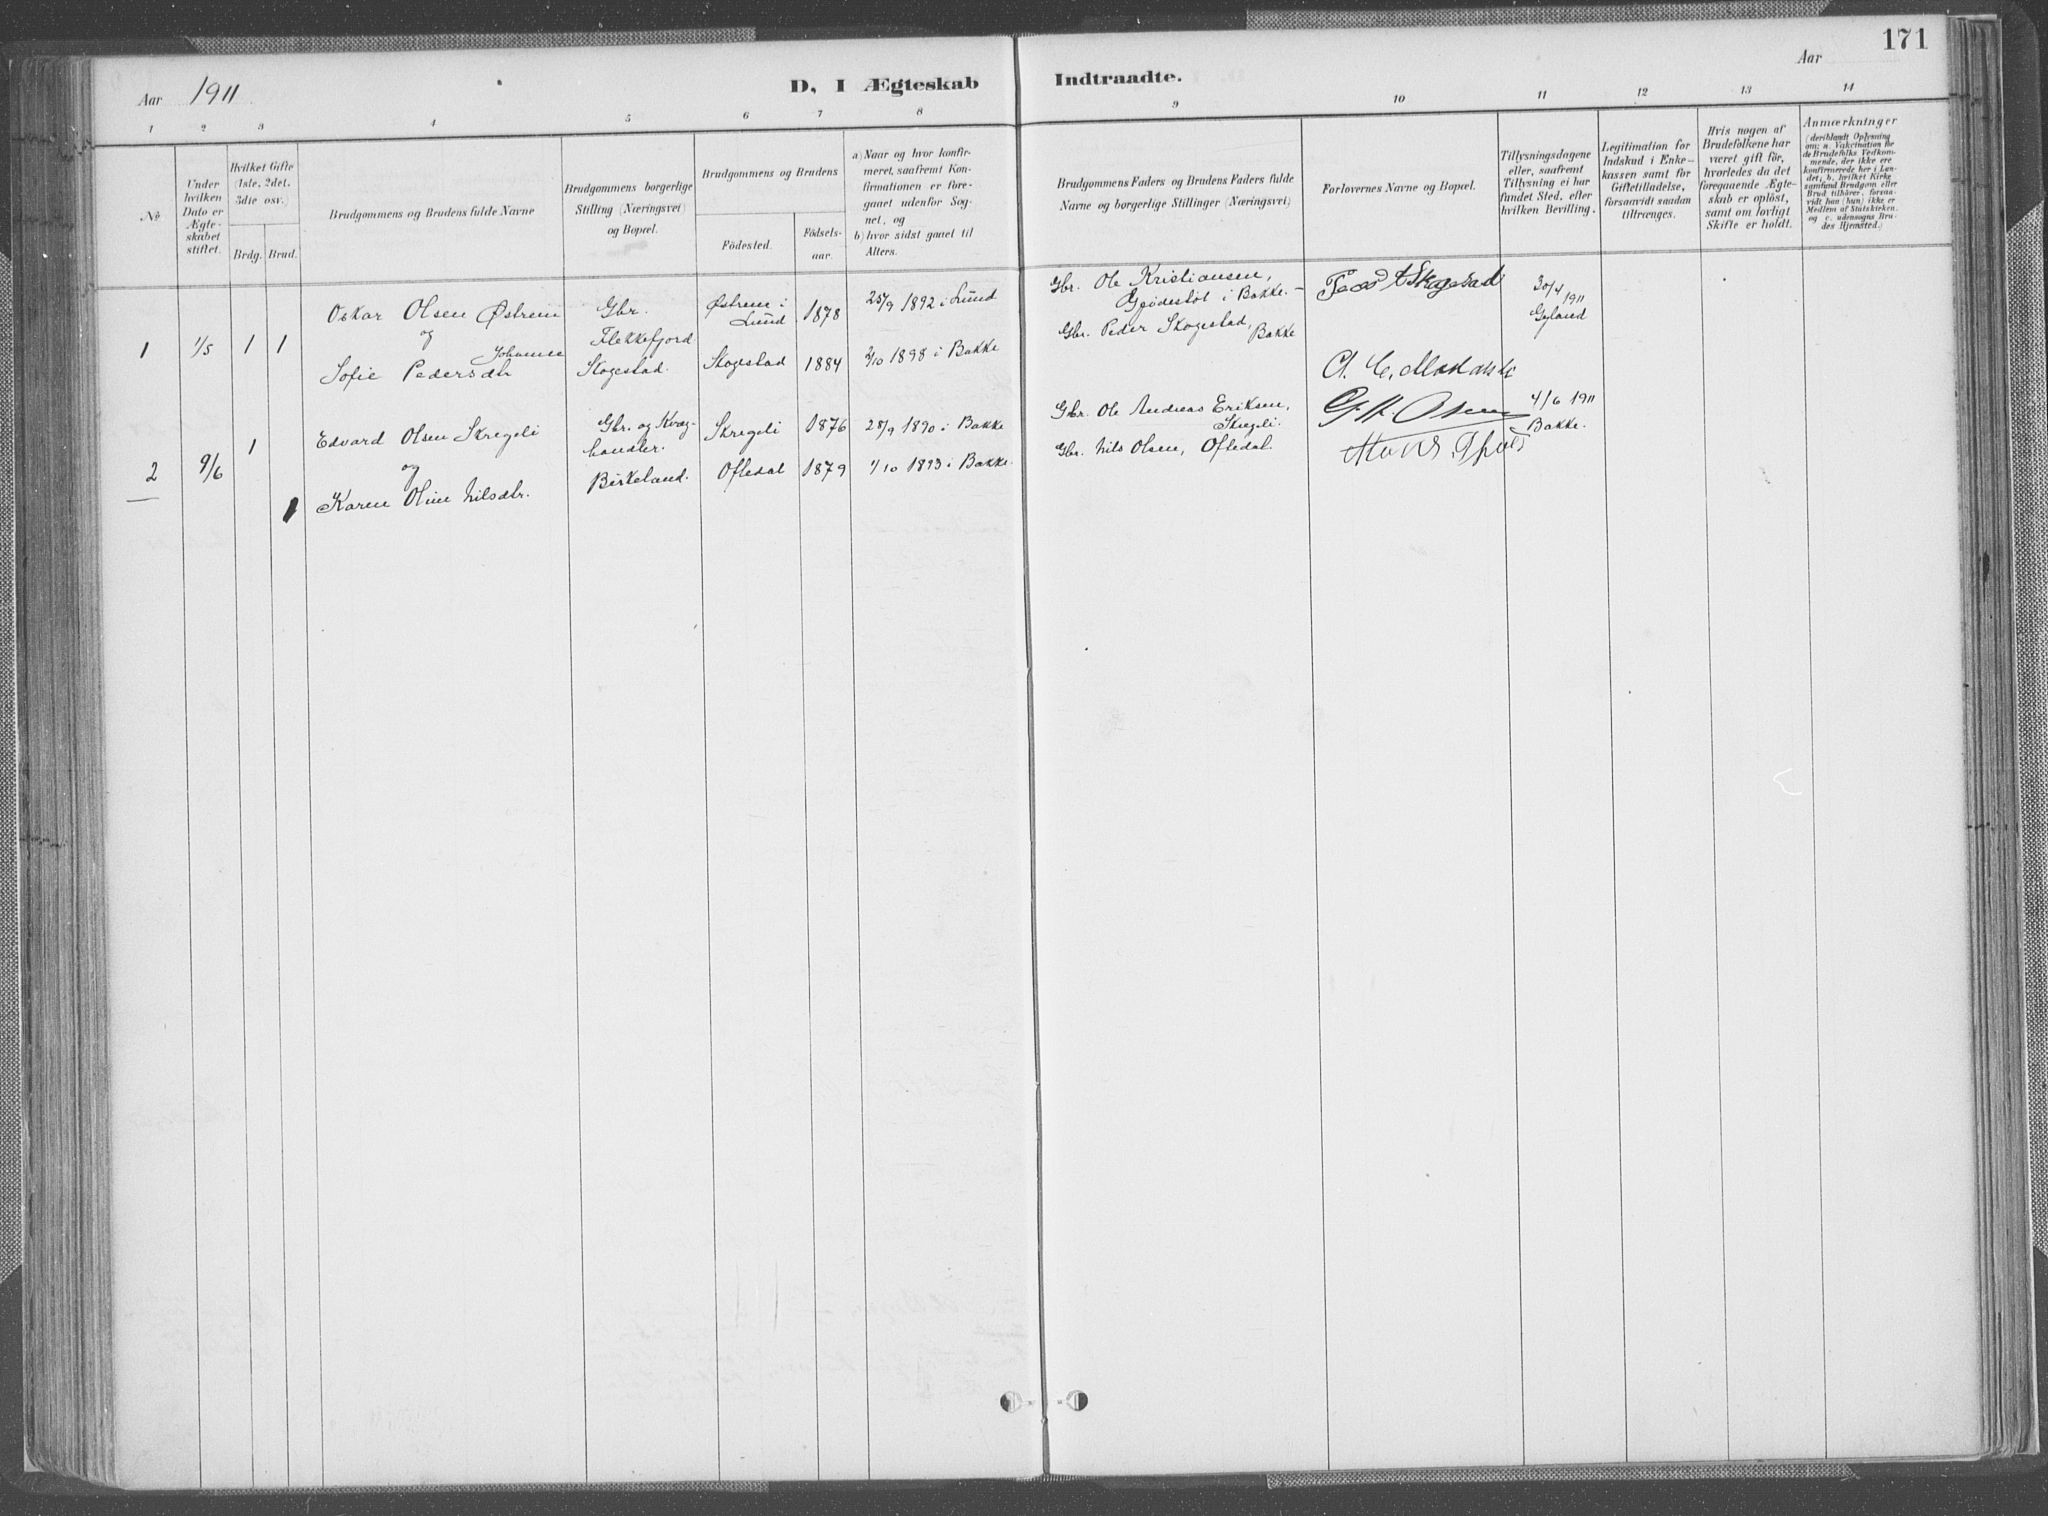 171
Aar 1911
D, I Ægteskab Indtraadte.
Aar
1 2 3 4 5 6 7 8 9 10 11 12 13 14
No
Under hvilken Dato er Ægteskabet stiftet.
Hvilket Gifte (1ste, 2det, 3die osv.)
Brdg. Brud.
Brudgommens og Brudens fulde Navne
Brudgommens borgerlige Stilling (Næringsvei) og Bopæl.
Brudgommens og Brudens
Födested.
Födselsaar.
a) Naar og hvor konfirmeret, saafremt Konfirmationen er foregaaet udenfor Sognet, og
b) hvor sidst gaaet til Alters.
Brudgommens Faders og Brudens Faders fulde Navne og borgerlige Stillinger (Næringsvei)
Forlovernes Navne og Bopæl.
Tillysningsdagene eller, saafremt Tillysning ei har fundet Sted, efter hvilken Bevilling.
Legitimation for Indskud i Enkekassen samt for Giftetilladelse, forsaavidt saadan tiltrænges.
Hvis nogen af Brudefolkene har været gift för, hvorledes da det foregaaende Ægteskab er oplöst, samt om lovligt Skifte er holdt.
Anmærkninger (deriblandt Oplysning om: a. Vakcination for de Brudefolks Vedkommende, der ikke ere konfirmerede her i Landet; b. hvilket Kirkesamfund Brudgom eller Brud tilhörer, forsaavidt han (hun) ikke er Medlem af Statskirken, og c. udensogns Brudes Hjemsted.)
1 1/5 1 1
Oskar Olsen Østrem
og
Johanne
Sofie Pedersdtr
Gbr.
Flekkefjord
Skogestad.
Østrem i Lund 1878
25/9 1892 i Lund
Skogestad 1884
2/10 1898 i Bakke
Gbr. Ole Kristiansen,
Gjödestöl i Bakke.
Gbr. Peder Skogestad,
Bakke
Skogestad
30/4 1911
Gyland
2 9/6 1 1
Edvard Olsen Skregeli
og
Karen Oline Nilsdtr.
Gbr. og Kvæghandler.
Birkeland.
Skregeli 1876
28/9 1890 i Bakke
Oftedal 1879
1/10 1893 i Bakke.
Gbr. Ole Andreas Eriksen,
Skregeli.
Gbr. Nils Olsen, Oftedal.
4/6 1911
Bakke.